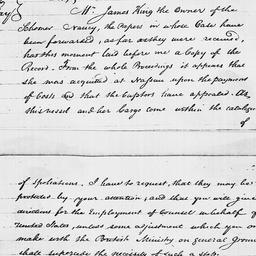 Mr. James King the Owner of the
Schooner Nancy, the Papers in whose Case have
been forwarded, as far as they were received,
has this moment laid before me a Copy of the
Record. From the whole Proceedings it appears that
she was acquitted at Nassau upon the payment
of Costs and that the Captors have appealed. As
this vessel and her Cargo come within the catalogue
of
of spoliations. I have to request, that they may be
protected by your attention; and that you will give
directions for the Employment of Counsel in behalf of
United States, unless some adjustment which you
make with the British Ministry on general ground
shall supersede the necessity of such a step.